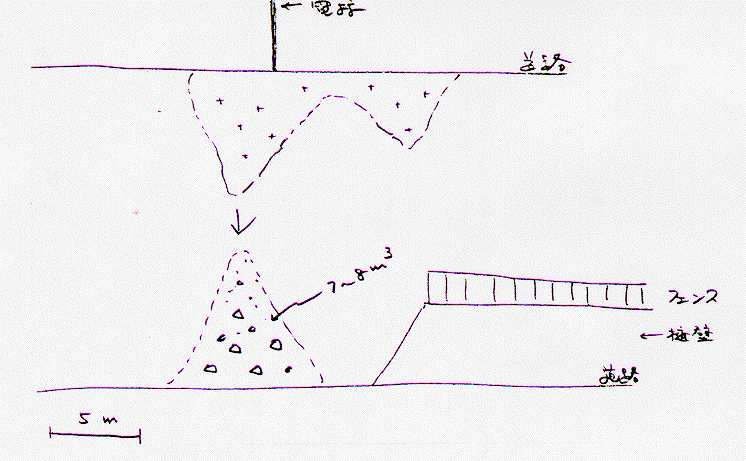 ← 電柱
道路
7~8m³
フェンス
← 擁壁
道路
5 m